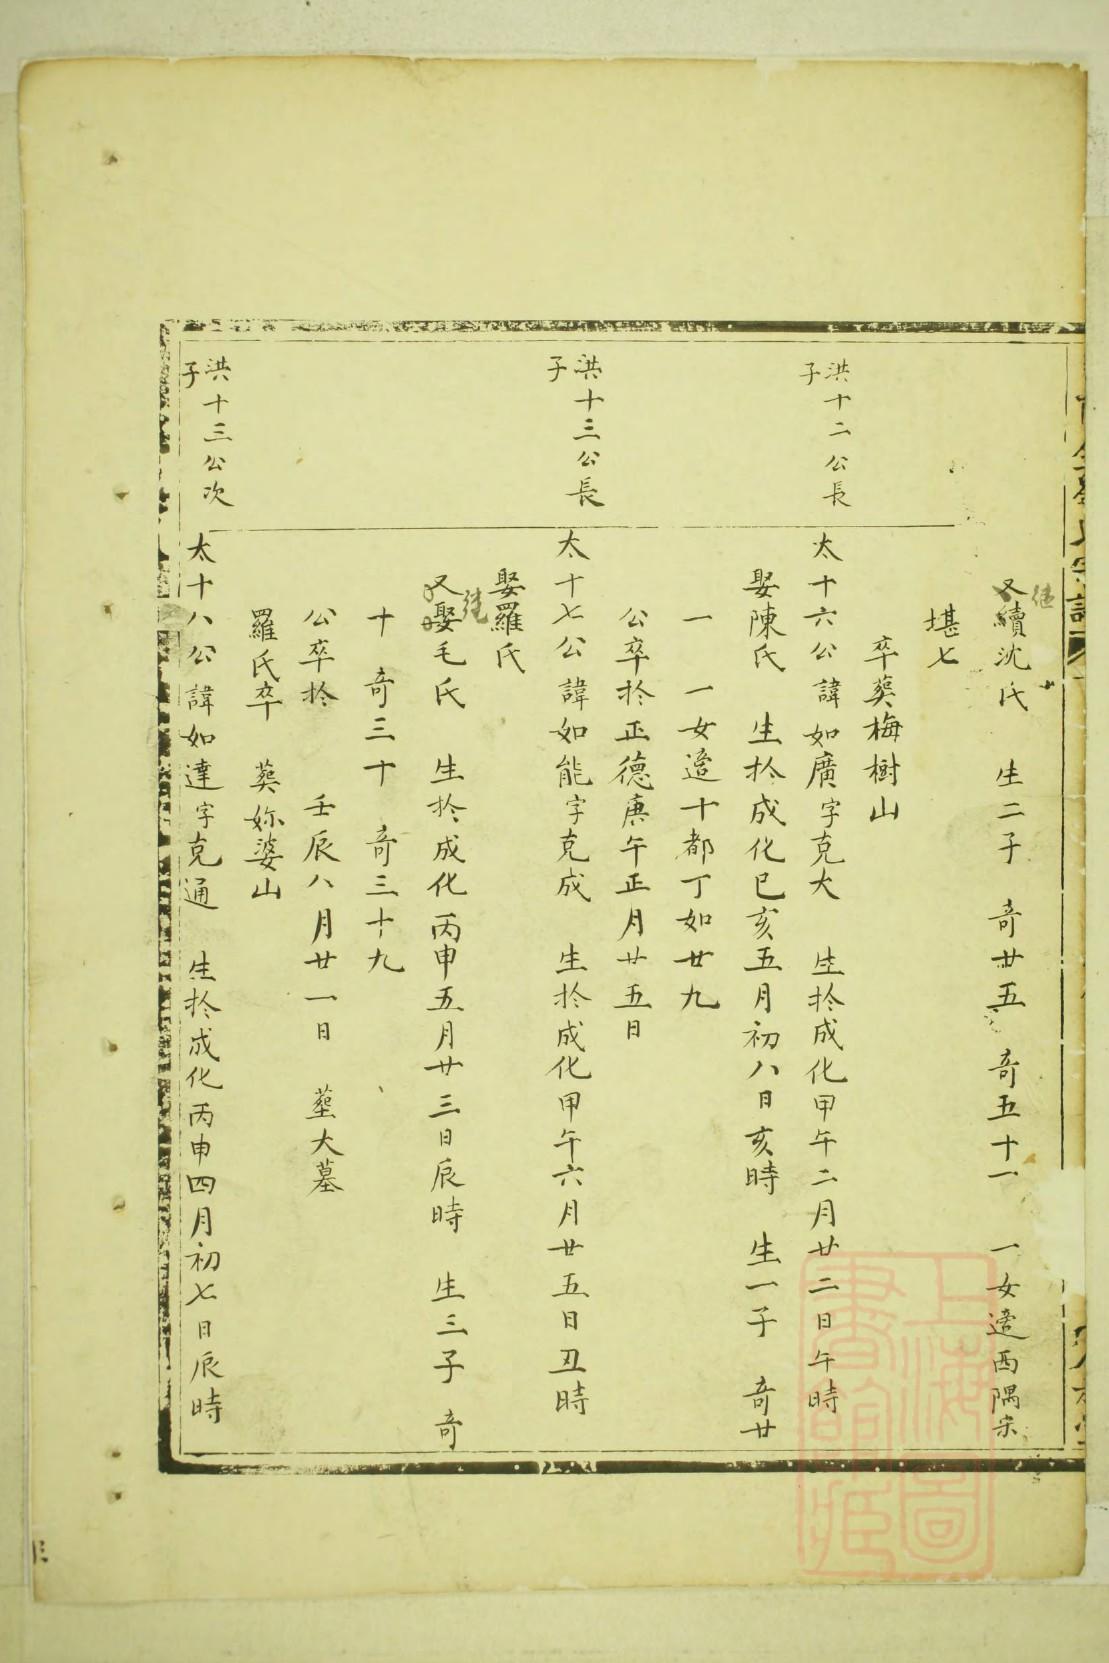 又續沈氏　生二子　奇廿五　奇五十一　一女適西隅宋
堪七
卒葬梅樹山
洪十二公長
子
太十六公諱如廣字克大　生於成化甲午二月廿二日午時
娶陳氏　生於成化己亥五月初八日亥時　生一子　奇廿
一　一女適十都丁如廿九
公卒於正德庚午正月廿五日
洪十三公長
子
太十七公諱如能字克成　生於成化甲午六月廿五日丑時
娶羅氏
又娶毛氏　生於成化丙申五月廿三日辰時　生三子　奇
十　奇三十　奇三十九
公卒於　壬辰八月廿一日　塟大墓
羅氏卒　葬妳婆山
洪十三公次
子
太十八公諱如達字克通　生於成化丙申四月初七日辰時
上海圖
書館藏